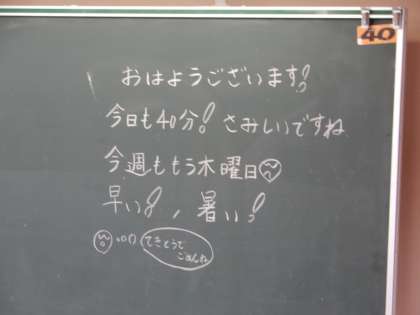 40
おはようございます!
今日も40分! さみしいですね
今週ももう木曜日
早い!, 暑い!
てきとうで
ごめんね